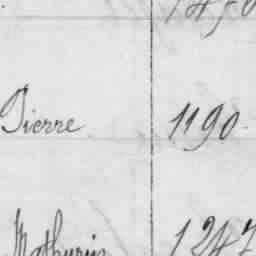 Pierre 1190
Mathurin 1247